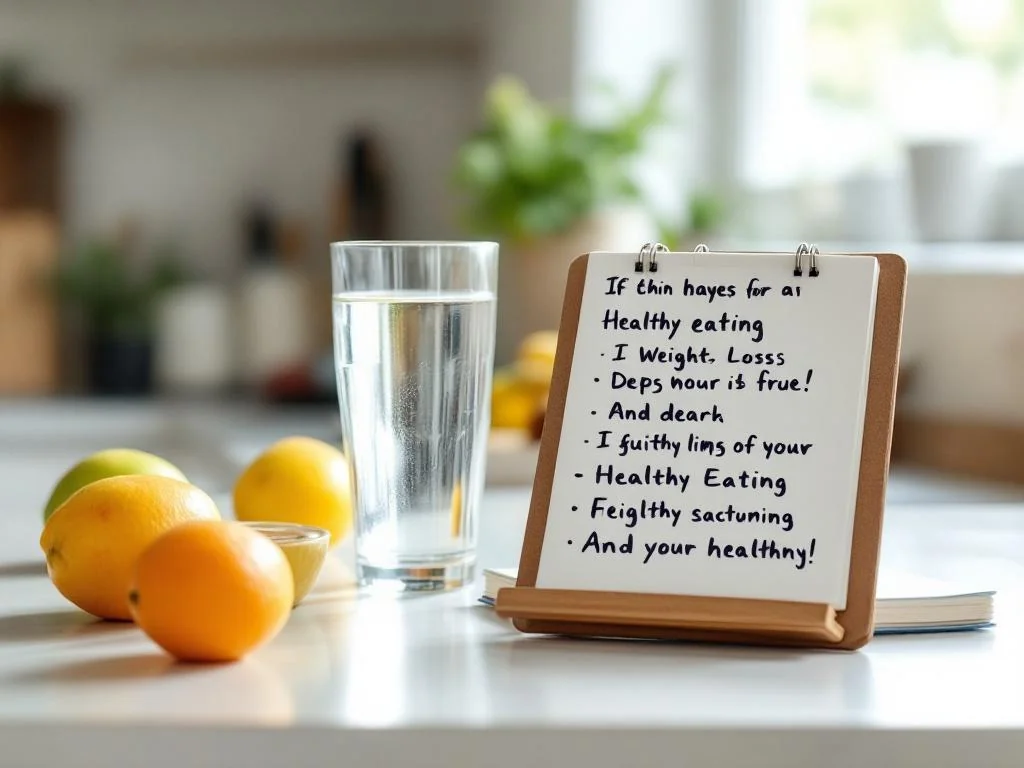 If thin hayes for ai
Healthy eating
· I Weight, Losss
· Deps nour is frue!
· And dearh
· I fuithy lims of your
- Healthy Eating
· Feiglthy sactuning
· And your healthny!